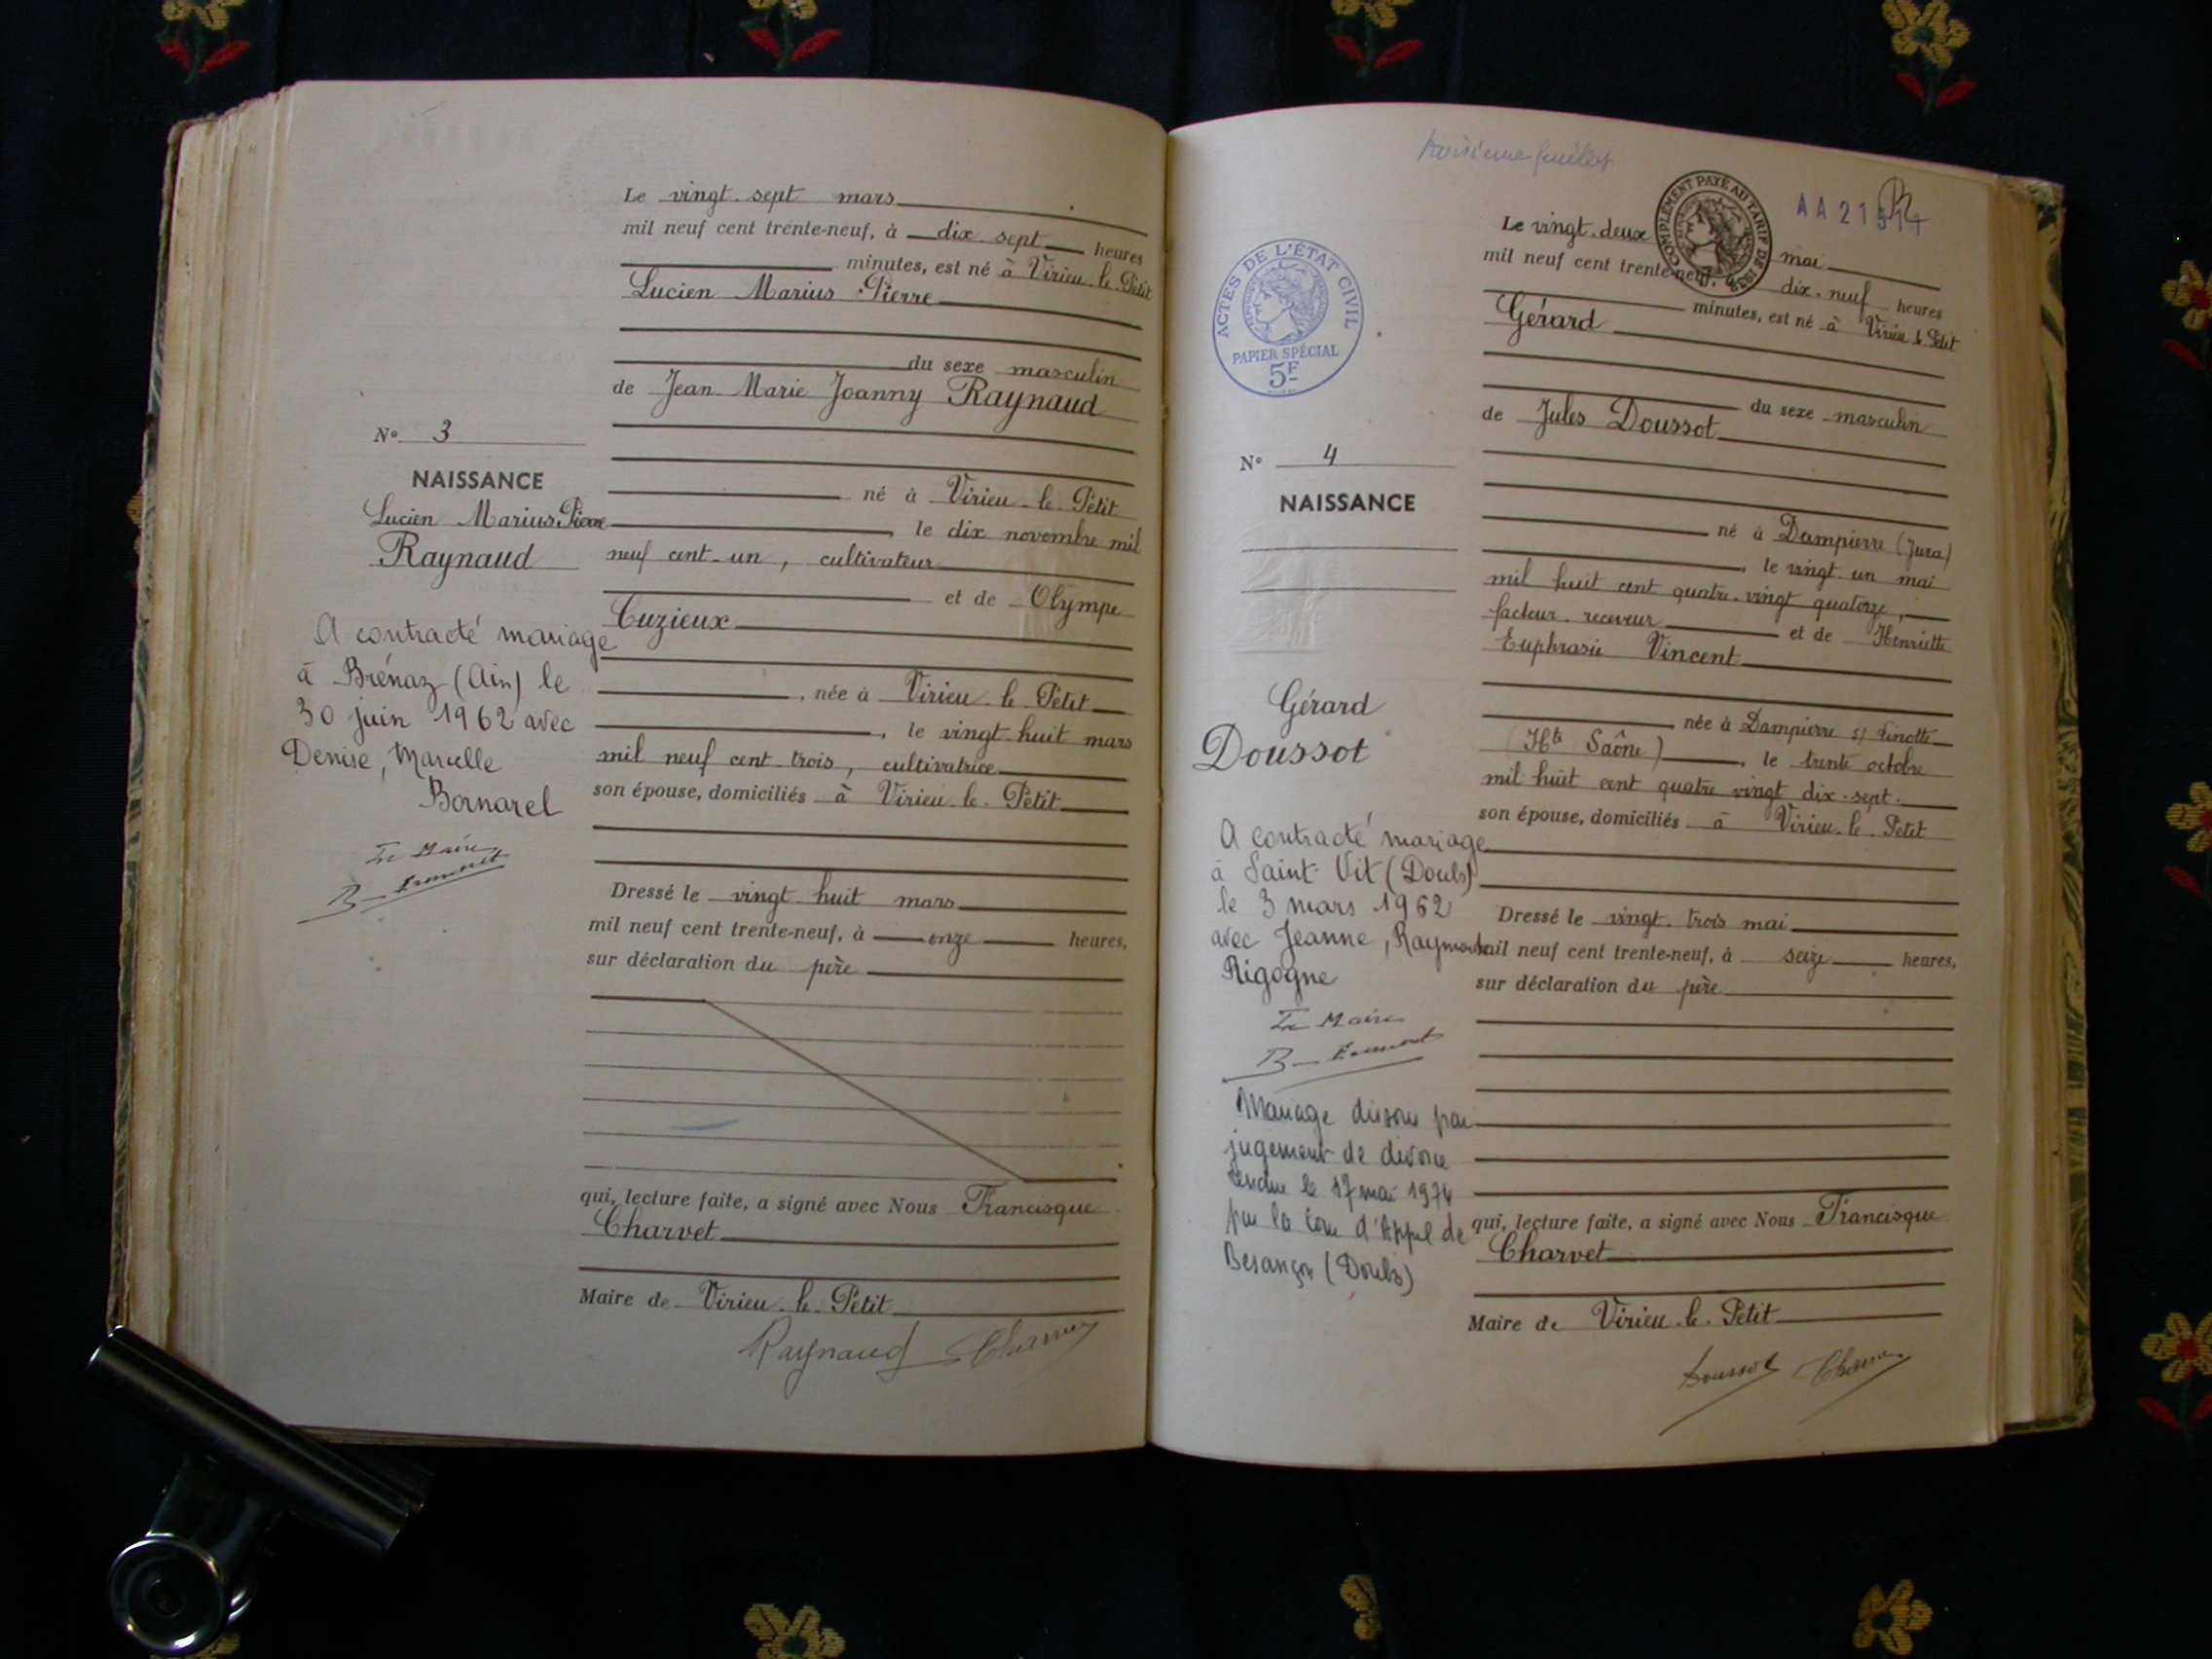 Le vingt-sept mars
mil neuf cent trente-neuf, à dix sept heures
minutes, est né à Virieu-le-Petit
Lucien Marius Pierre
du sexe masculin
de Jean Marie Joanny Raynaud
né à Virieu-le-Petit
le dix novembre mil
neuf cent un, cultivateur
et de Olympe
Cuzieux
, née à Virieu-le-Petit
, le vingt-huit mars
mil neuf cent trois, cultivatrice
son épouse, domiciliés à Virieu-le-Petit
Dressé le vingt huit mars
mil neuf cent trente-neuf, à onze heures,
sur déclaration du père
qui, lecture faite, a signé avec Nous Francisque
Charvet
Maire de Virieu-le-Petit
Raynaud
N° 3
NAISSANCE
Lucien Marius Pierre
Raynaud
A contracté mariage
à Brénaz (Ain) le
30 juin 1962 avec
Denise, Marcelle
Bornarel
Le Maire
troisième feuillet
COMPLÉMENT PAYÉ AU TARIF DE 1938
AA 21514
ACTES DE L'ÉTAT CIVIL
PAPIER SPÉCIAL
5F
Le vingt-deux mai
mil neuf cent trente-neuf, à dix-neuf heures
minutes, est né à Virieu-le-Petit
Gérard
du sexe masculin
de Jules Doussot
né à Dampierre (Jura)
, le vingt-un mai
mil huit cent quatre-vingt quatorze,
facteur-receveur et de Henriette
Euphrasie Vincent
née à Dampierre s/ Linotte
(Hte Saône), le trente octobre
mil huit cent quatre vingt dix-sept.
son épouse, domiciliés à Virieu-le-Petit
Dressé le vingt-trois mai
mil neuf cent trente-neuf, à seize heures,
sur déclaration du père
qui, lecture faite, a signé avec Nous Francisque
Charvet
Maire de Virieu-le-Petit
Doussot
N° 4
NAISSANCE
Gérard
Doussot
A contracté mariage
à Saint-Vit (Doubs)
le 3 mars 1962
avec Jeanne, Raymonde
Rigogne
Le Maire
Mariage dissous par
jugement de divorce
rendu le 17 mai 1974
par la Cour d'Appel de
Besançon (Doubs)